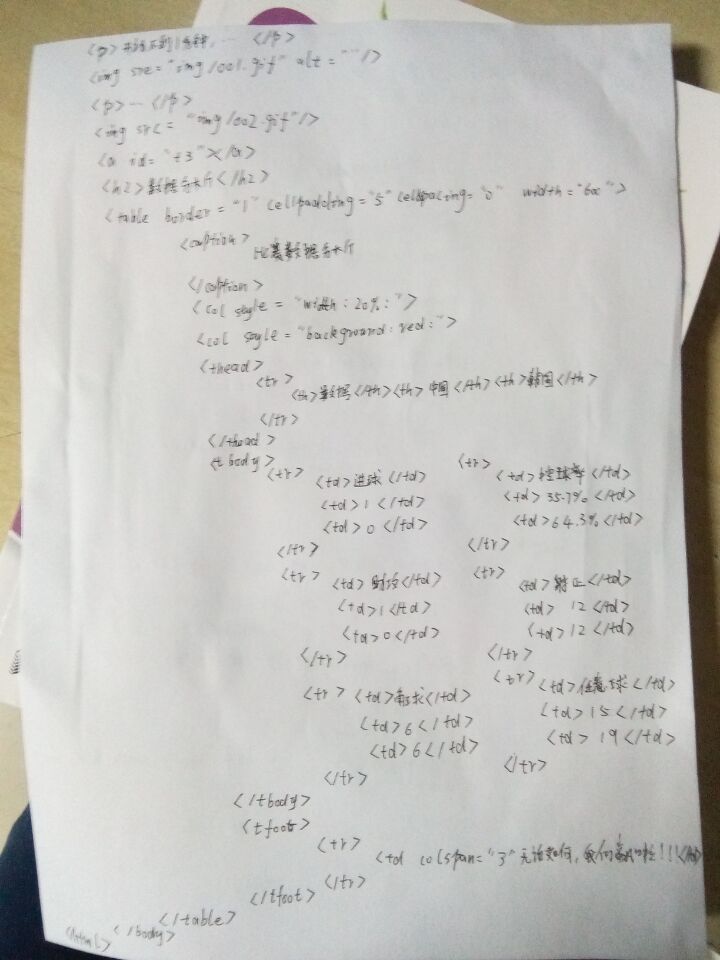 <p> 开始不到1分钟，… </p>
<img src="img/001.gif" alt=""/>
<p>…</p>
<img src="img/002.gif"/>
<a id="t3"></a>
<h2>数据与卡片</h2>
<table border="1" cellpadding="5" cellspacing="0" width="600">
<caption>
数据与卡片
</caption>
<col style="width:20%:">
<col style="background:red:">
<thead>
<tr>
<th>数据</th><th>中国</th><th>韩国</th>
</tr>
</thead>
<tbody>
<tr>
<td>进球</td>
<td>1</td>
<td>0</td>
</tr>
<tr>
<td>助攻</td>
<td>1</td>
<td>0</td>
</tr>
<tr>
<td>角球</td>
<td>6</td>
<td>6</td>
</tr>
<tr>
<td>控球率</td>
<td>35.7%</td>
<td>64.3%</td>
</tr>
<tr>
<td>射正</td>
<td>12</td>
<td>12</td>
</tr>
<tr>
<td>任意球</td>
<td>15</td>
<td>19</td>
</tr>
</tbody>
<tfoot>
<tr>
<td colspan="3" 无论如何，我们赢了!!!</td>
</tr>
</tfoot>
</table>
</body>
</html>